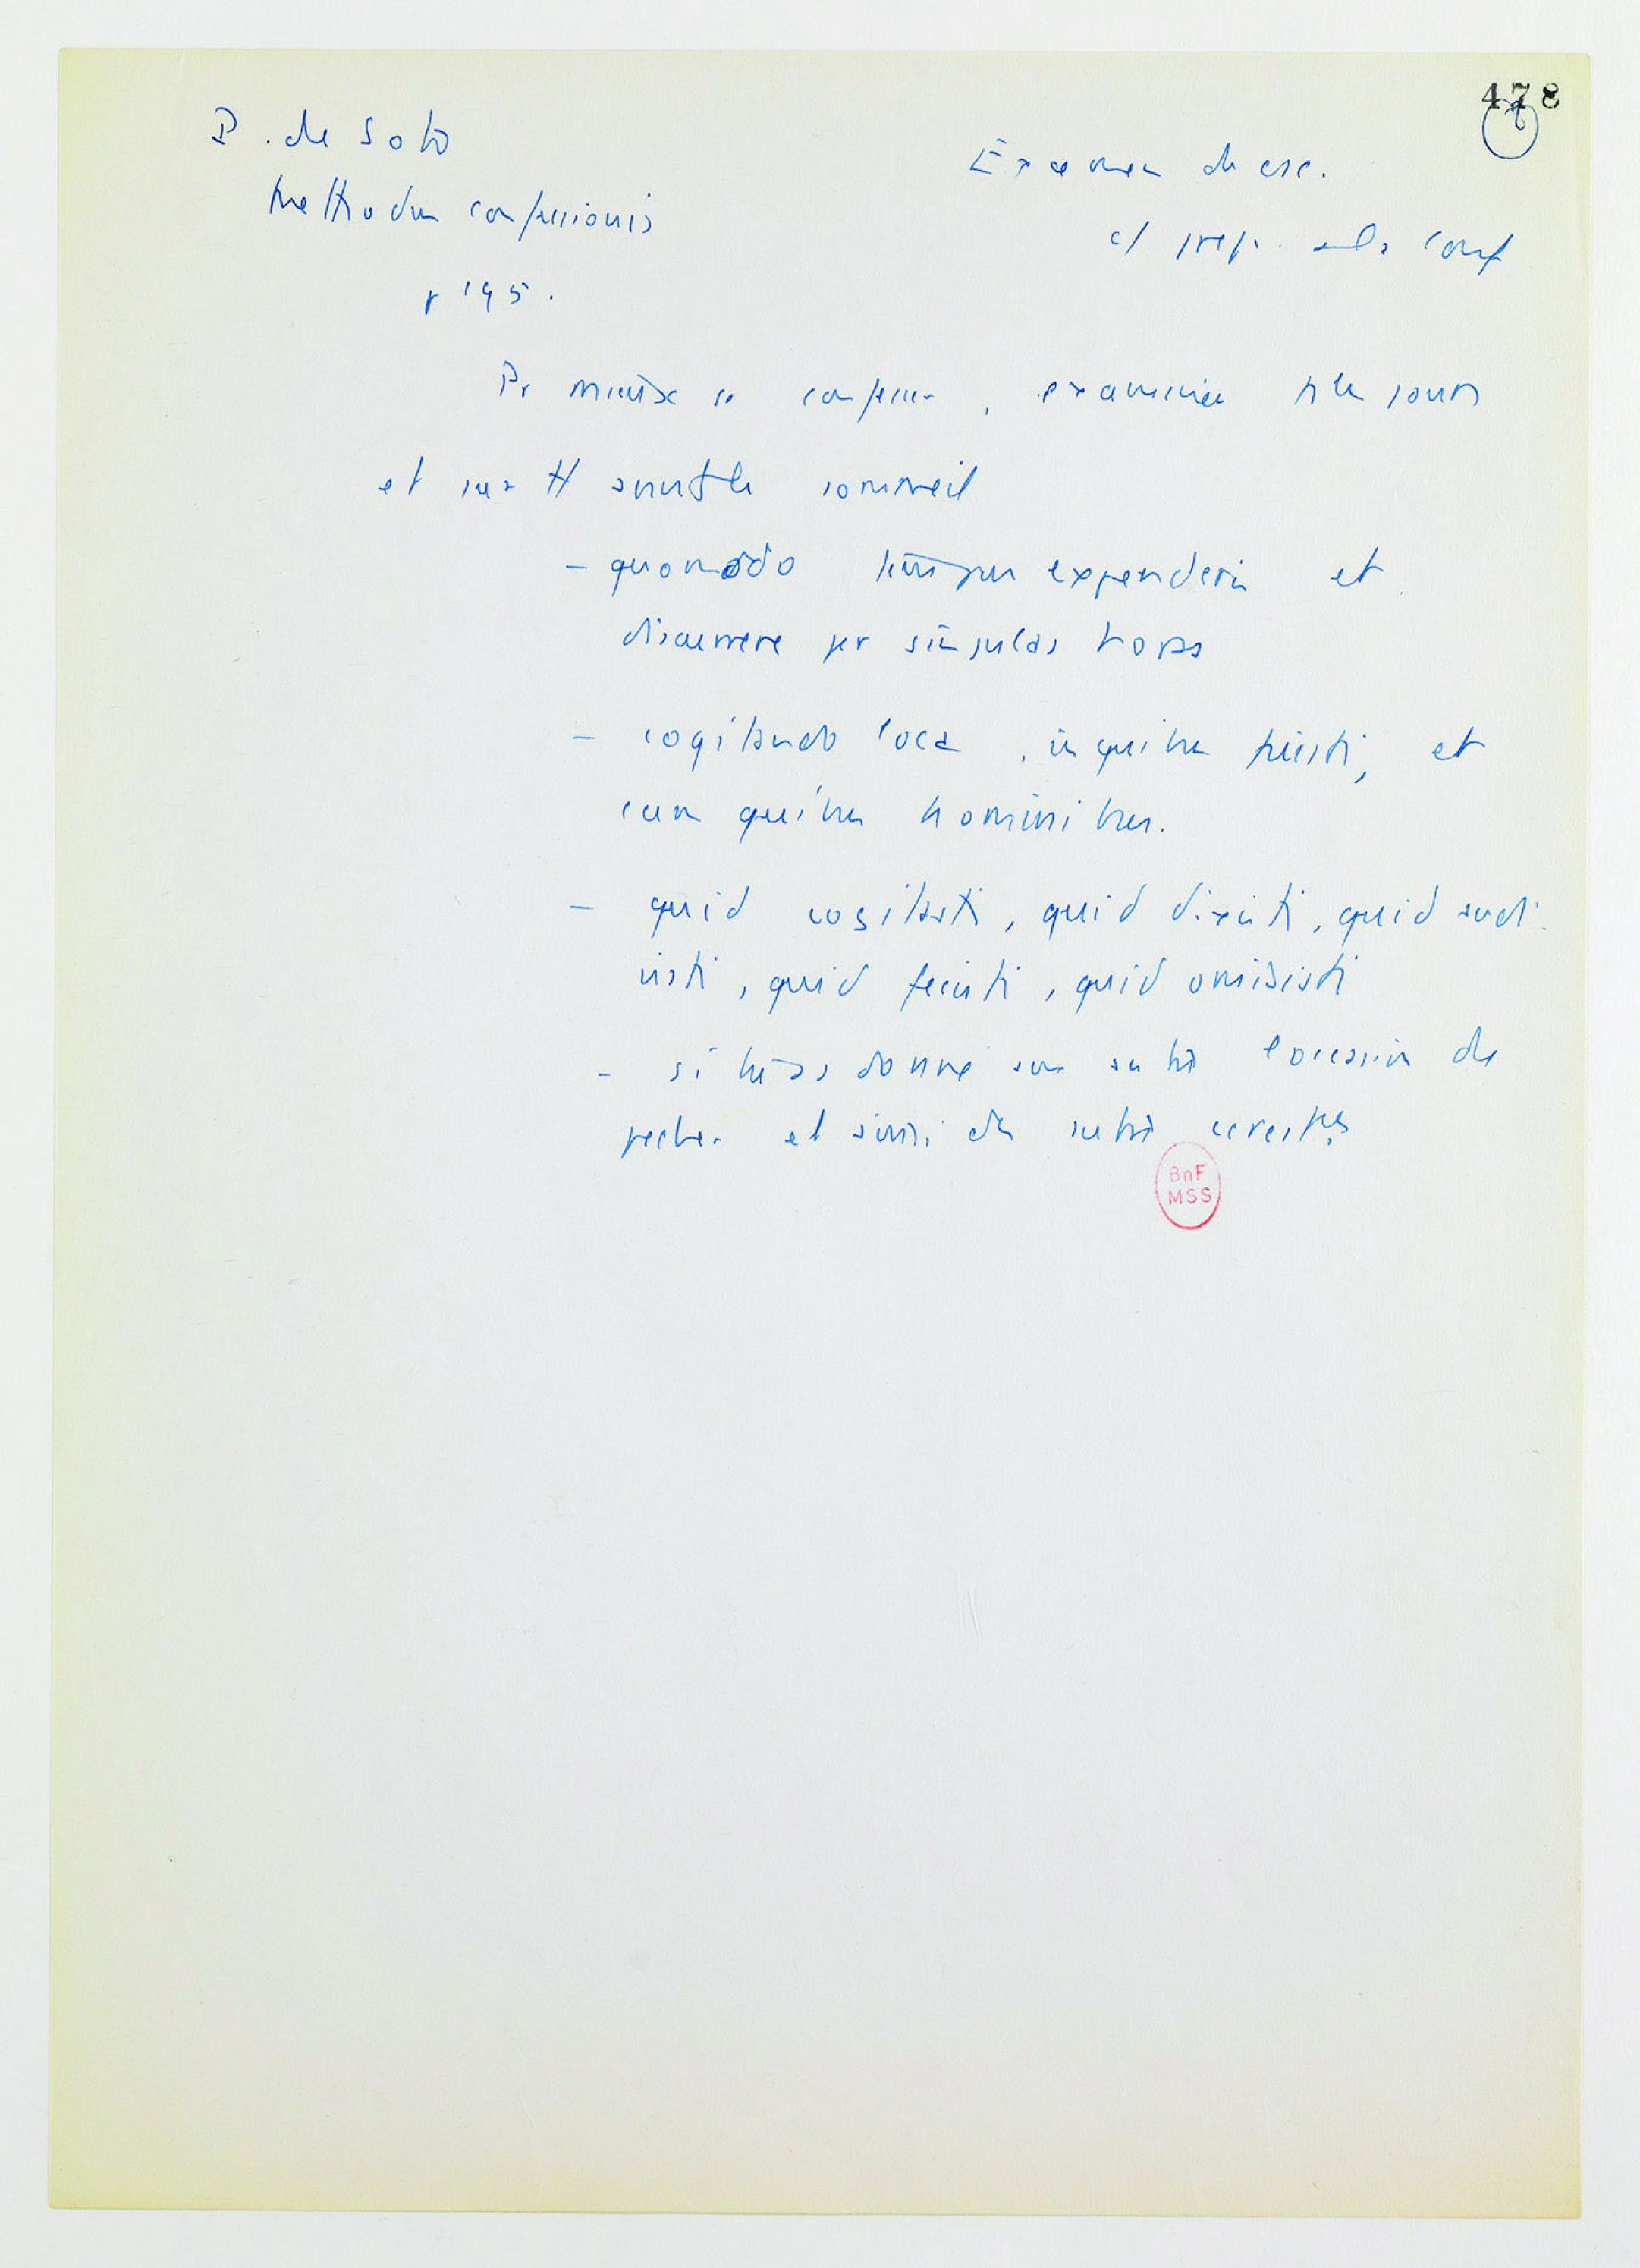 478
P. de Soto
Methodus confessionis
p 195.
Examen de csc.
et prep. à la conf
Pr mieux se confesser, examiner ts les jours
et sur tt avant le sommeil
- quomodo tempus expenderis et
discurrere per singulas horas
- cogitando loca, in quibus fuisti, et
cum quibus hominibus.
- quid cogitasti, quid dixisti, quid audi
visti, quid fecisti, quid omisisti
- si tu as donné aux autres l'occasion de
pecher et ainsi des autres
BnF
MSS